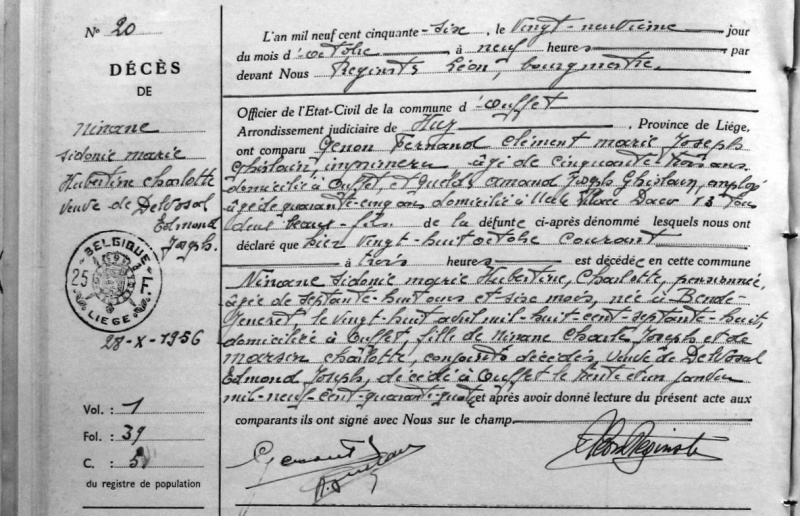 N° 20
DÉCÈS
DE
Ninane
Sidonie Marie
Hubertine Charlotte
Veuve de Delvosal
Edmond
Joseph.
BELGIQUE
25 F.
LIEGE
28-X-1956
Vol. : 1
Fol. : 39
C. : 5
du registre de population
L'an mil neuf cent cinquante-six, le vingt-neuvième jour
du mois d'octobre à neuf heures par
devant Nous Reginster Léon, bourgmestre.
Officier de l'Etat-Civil de la commune d'Ouffet
Arrondissement judiciaire de Huy, Province de Liége,
ont comparu Genon Fernand Clément Marie Joseph
Ghislain, imprimeur, âgé de cinquante trois ans,
domicilié à Ouffet, et Amand Joseph Ghislain, employé
âgé de quarante-cinq ans domicilié à Uccle Place 13 Tous
deux beaux-fils de la défunte ci-après dénommé lesquels nous ont
déclaré que hier vingt-huit octobre courant
à trois heures est décédée en cette commune
Ninane Sidonie Marie Hubertine, Charlotte, pensionnée,
âgée de septante-huit ans et six mois, née à Bende-
Jeneret, le vingt-huit avril mil-huit-cent-septante-huit,
domiciliée à Ouffet, fille de Ninane Charles Joseph et de
Marsin Charlotte, conjoints décédés, Veuve de Delvosal
Edmond Joseph, décédé à Ouffet le trente et un janvier
mil-neuf-cent-quarante-quatre et après avoir donné lecture du présent acte aux
comparants ils ont signé avec Nous sur le champ.
Genon
Léon Reginster